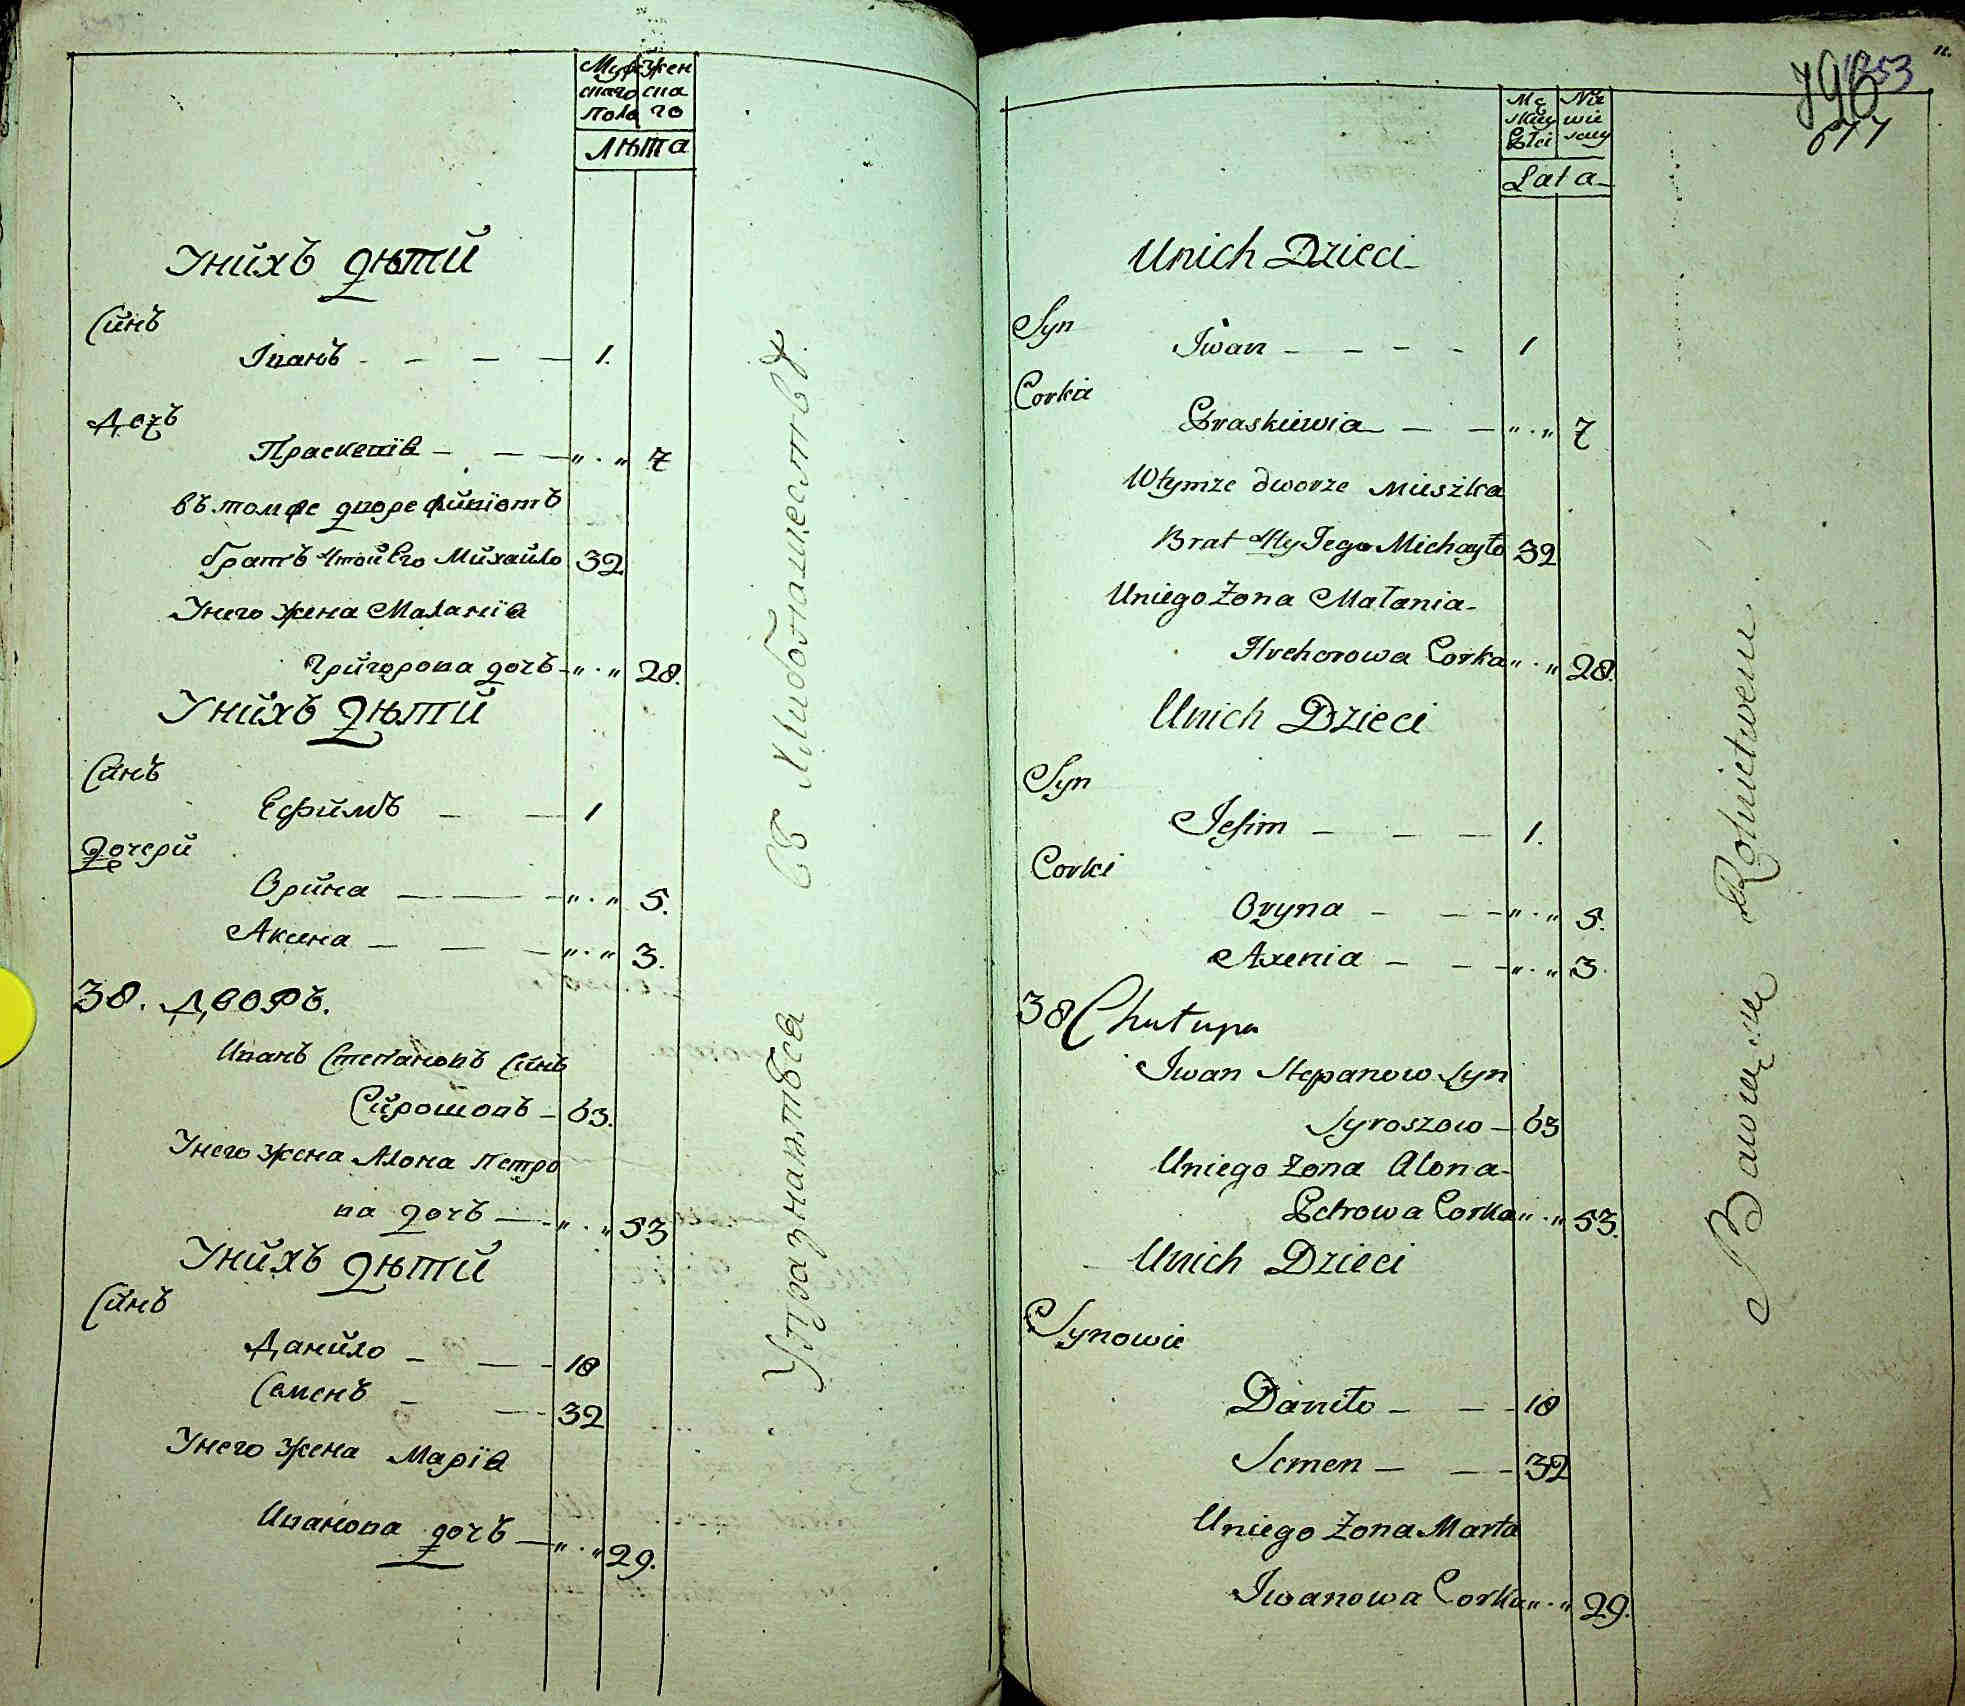 Мужескаго пола
Женскаго
Лѣта
Унихъ дѣти
Синъ
Іванъ - - - - 1.
Дочъ
Прасковія - - - „ . „ 7
въ томже дворе живіотъ
братъ 4тои Его Михайло 32
Унего жена Маланія
Григорова дочъ - „ . „ 28.
Унихъ дѣти
Синъ
Ефимъ - - 1
Дочери
Орина - - - „ . „ 5.
Аксина - - - „ . „ 3.
38. Дворъ.
Иванъ Степановъ Синъ
Сирошовъ - 63.
Унего жена Алона Петро
ва дочъ - „ . „ 53
Унихъ дѣти
Синъ
Данило - - - 18
Семенъ - - 32
Унего жена Марія
Иванова дочъ - „ . „ 29.
Упразнатьса съ хлибопашествѣ
796
1253
677
Męskiey Płci
Niewiesciey
Lata
Unich Dzieci
Syn
Iwan - - - - 1
Corka
Praskiewia - - „ . „ 7
Wtymże dworze Mieszka
Brat 4ty Iego Michayło 32
Uniego Żona Małania -
Hrehorowa Corka „ . „ 28.
Unich Dzieci
Syn
Iefim - - - 1.
Corki
Oryna - - - „ . „ 5.
Axenia - - - „ . „ 3.
38 Chałupa
Iwan Stepanow Syn
Syroszow - 63
Uniego Żona Alona -
Petrowa Corka „ . „ 53.
Unich Dzieci
Synowie
Daniło - - - 18
Semen - - - 32
Uniego Żona Marta
Iwanowa Corka „ . „ 29.
Bawią się Rolnictwem